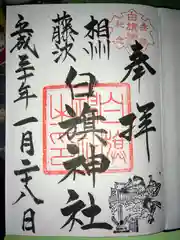 奉拝
相州
藤沢
白旗神社
平成三十年一月二十八日